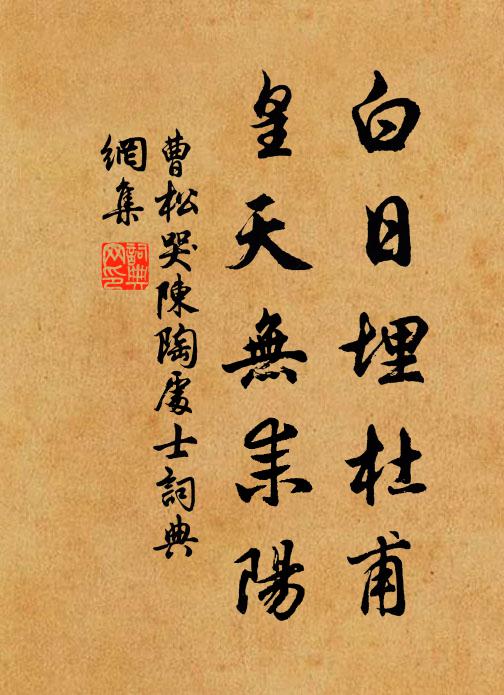 白日埋杜甫
皇天無耒陽
曹松哭陳陶處士詞典
網集
詞典
网印